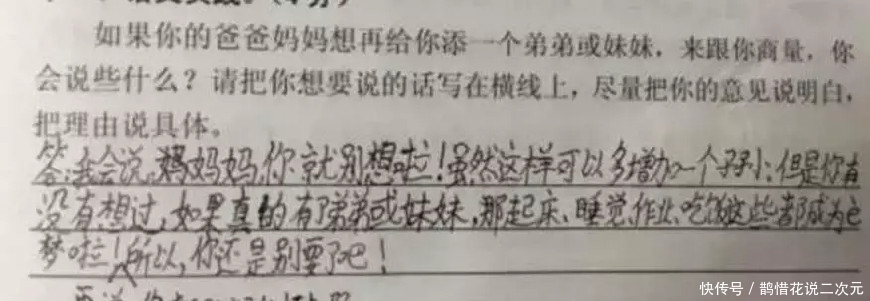 如果你的爸爸妈妈想再给你添一个弟弟或妹妹，来跟你商量，你
会说些什么？请把你想要说的话写在横线上，尽量把你的意见说明白，
把理由说具体。
答：我会说，妈妈，你就别想啦！虽然这样可以多增加一个孩小，但是你有
没有想过，如果真的有了弟弟或妹妹，那起床、睡觉、作业、吃饭这些都成为
梦啦！所以，你还是别要了吧！
快传号／鹊惜花说二次元